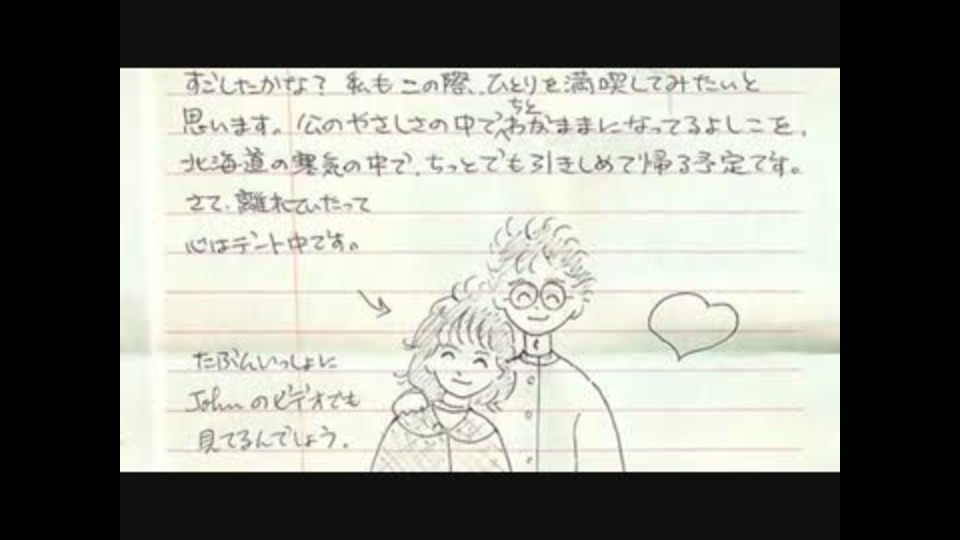 すごしたかな? 私もこの際、ひとりを満喫してみたいと
思います。公のやさしさの中で、ちとわがままになってるよしこを、
北海道の寒気の中で、ちっとでも引きしめて帰る予定です。
さて、離れていたって
心はテント中です。
たぶんいっしょに
Johnのビデオでも
見てるんでしょう。